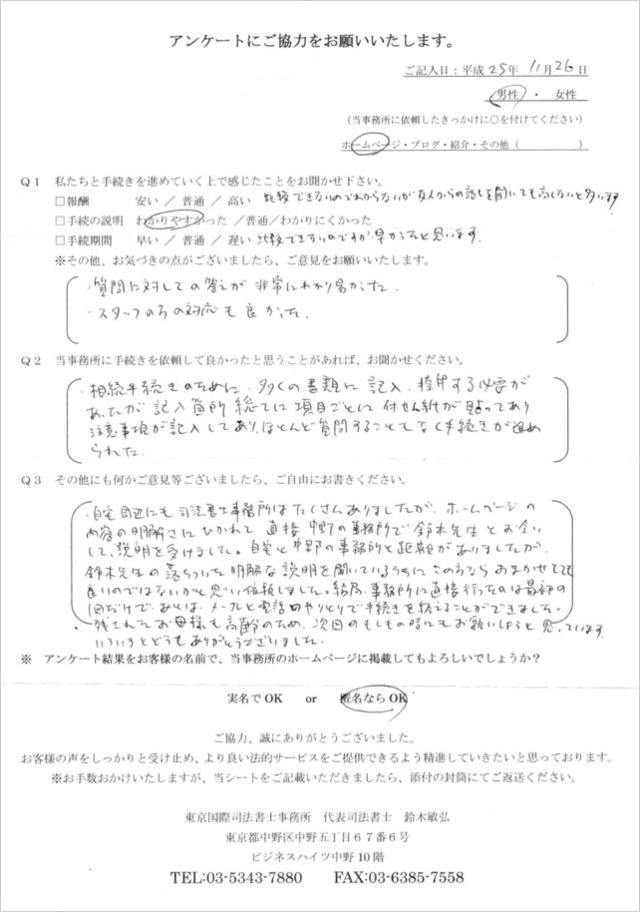 アンケートにご協力をお願いいたします。
ご記入日：平成 25年 11月 26日
男性 ・ 女性
（当事務所に依頼したきっかけに○を付けてください）
ホームページ・ブログ・紹介・その他（ ）
Ｑ１ 私たちと手続きを進めていく上で感じたことをお聞かせ下さい。
□報酬 安い ／ 普通 ／ 高い 比較できないのでわからないが友人からの話しを聞いても高くないと思います
□手続の説明 わかりやすかった ／普通／わかりにくかった
□手続期間 早い ／ 普通 ／ 遅い 比較できないのですが早かったと思います。
※その他、お気づきの点がございましたら、ご意見をお願いいたします。
・質問に対しての答えが 非常にわかり易かった.
・スタッフの方の対応も良かった.
Ｑ２ 当事務所に手続きを依頼して良かったと思うことがあれば、お聞かせください。
・相続手続きのために、多くの書類に記入、捺印する必要が
あったが記入箇所 総てに項目ごとに 付せん紙が貼ってあり
注意事項が記入してあり、ほとんど質問することもなく手続きが進め
られた.
Ｑ３ その他にも何かご意見等ございましたら、ご自由にお書きください。
・自宅周辺にも司法書士事務所はたくさんありましたが、ホームページの
内容の明解さにひかれて 直接 中野の事務所で鈴木先生とお会い
して、説明を受けました。自宅と中野の事務所と距離がありましたが、
鈴木先生の落ちついた明解な説明を聞いているうちに この方なら おまかせしても
良いのではないかと思い依頼しました。結局、事務所に直接行ったのは最初の
1回だけで、あとは、メールと電話のやりとりで手続きを終えることができました。
・残されたお母様も高齢のため、次回のもしもの時にもお願いしようと思っています
いろいろとどうもありがとうございました.
※ アンケート結果をお客様の名前で、当事務所のホームページに掲載してもよろしいでしょうか？
実名でOK or 匿名ならOK
ご協力、誠にありがとうございました。
お客様の声をしっかりと受け止め、より良い法的サービスをご提供できるよう精進していきたいと思っております。
※お手数おかけいたしますが、当シートをご記載いただきましたら、添付の封筒にてご返送ください。
東京国際司法書士事務所 代表司法書士 鈴木敏弘
東京都中野区中野五丁目６７番６号
ビジネスハイツ中野 10 階
TEL:03-5343-7880 FAX:03-6385-7558